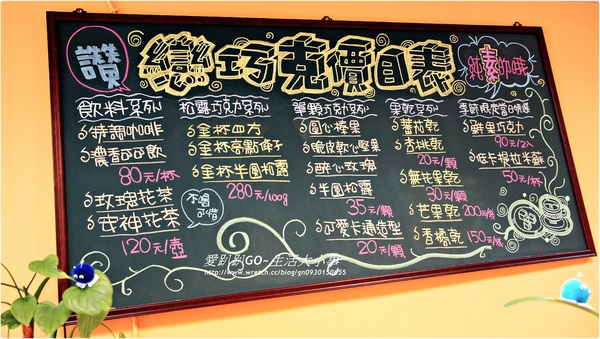 讚
戀巧克價目表
純素ㄉ哦
飲料系列
特調咖啡
濃香可可飲
80元/杯
玫瑰花茶
安神花茶
120元/壺
不喝可惜
松露巧克力系列
金杯四方
金杯亮點條子
金杯半圓松露
280元/100g
單顆巧克力系列
圓心榛果
脆皮軟心堅果
醉心玫瑰
半圓松露
35元/顆
可愛卡通造型
20元/顆
果乾系列
蕃茄乾
杏桃乾
20元/顆
無花果乾
30元/顆
芒果乾 200元/
香橙乾 150元/
季節限定
鮮果巧克力
90元/2入
低卡提拉米蘇
50元/杯
愛趴趴GO-生活大小事
http://www.wretch.cc/blog/gn0930150455